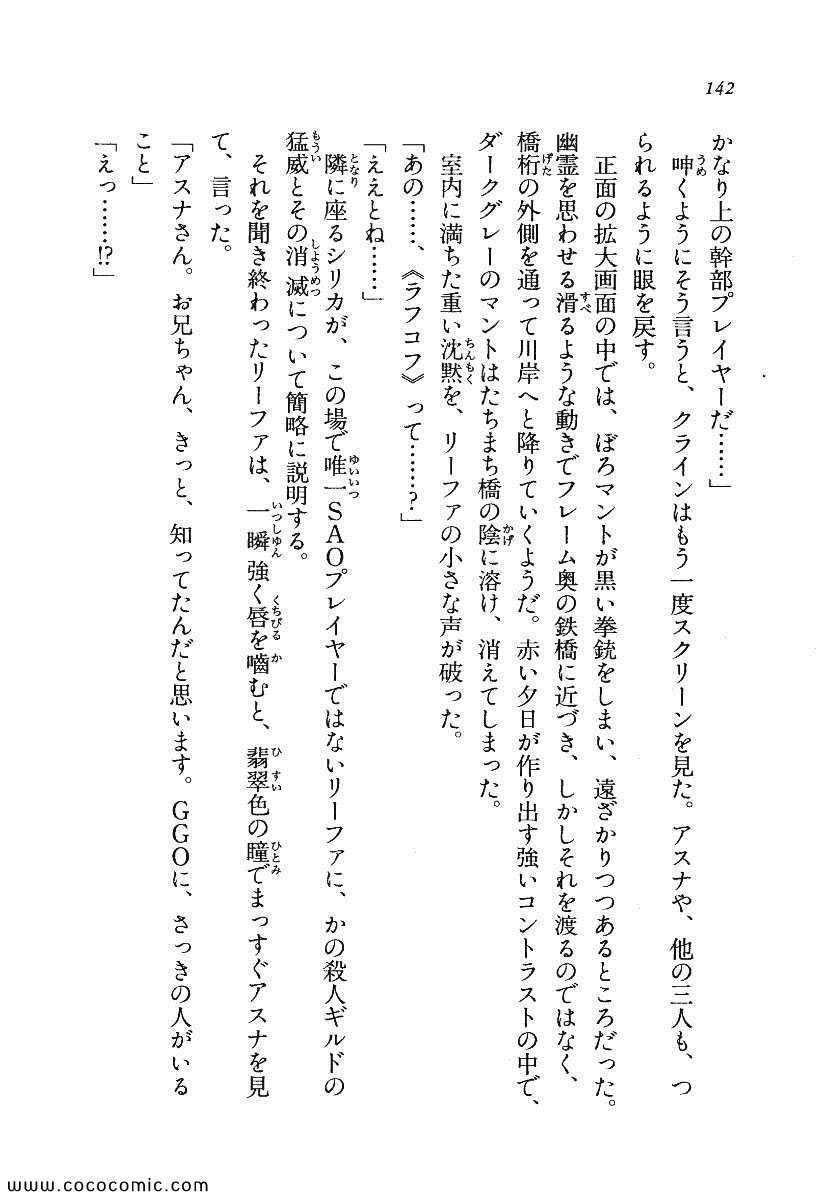 142
かなり上の幹部プレイヤーだ……」
呻くようにそう言うと、クラインはもう一度スクリーンを見た。アスナや、他の三人も、つ
られるように眼を戻す。
正面の拡大画面の中では、ぼろマントが黒い拳銃をしまい、遠ざかりつつあるところだった。
幽霊を思わせる滑るような動きでフレーム奥の鉄橋に近づき、しかしそれを渡るのではなく、
橋桁の外側を通って川岸へと降りていくようだ。赤い夕日が作り出す強いコントラストの中で、
ダークグレーのマントはたちまち橋の陰に溶け、消えてしまった。
室内に満ちた重い沈黙を、リーファの小さな声が破った。
「あの……、《ラフコフ》って……?」
「ええとね……」
隣に座るシリカが、この場で唯一SAOプレイヤーではないリーファに、かの殺人ギルドの
猛威とその消滅について簡略に説明する。
それを聞き終わったリーファは、一瞬強く唇を嚙むと、翡翠色の瞳でまっすぐアスナを見
て、言った。
「アスナさん。お兄ちゃん、きっと、知ってたんだと思います。GGOに、さっきの人がいる
こと」
「えっ……!?」
www.cococomic.com/